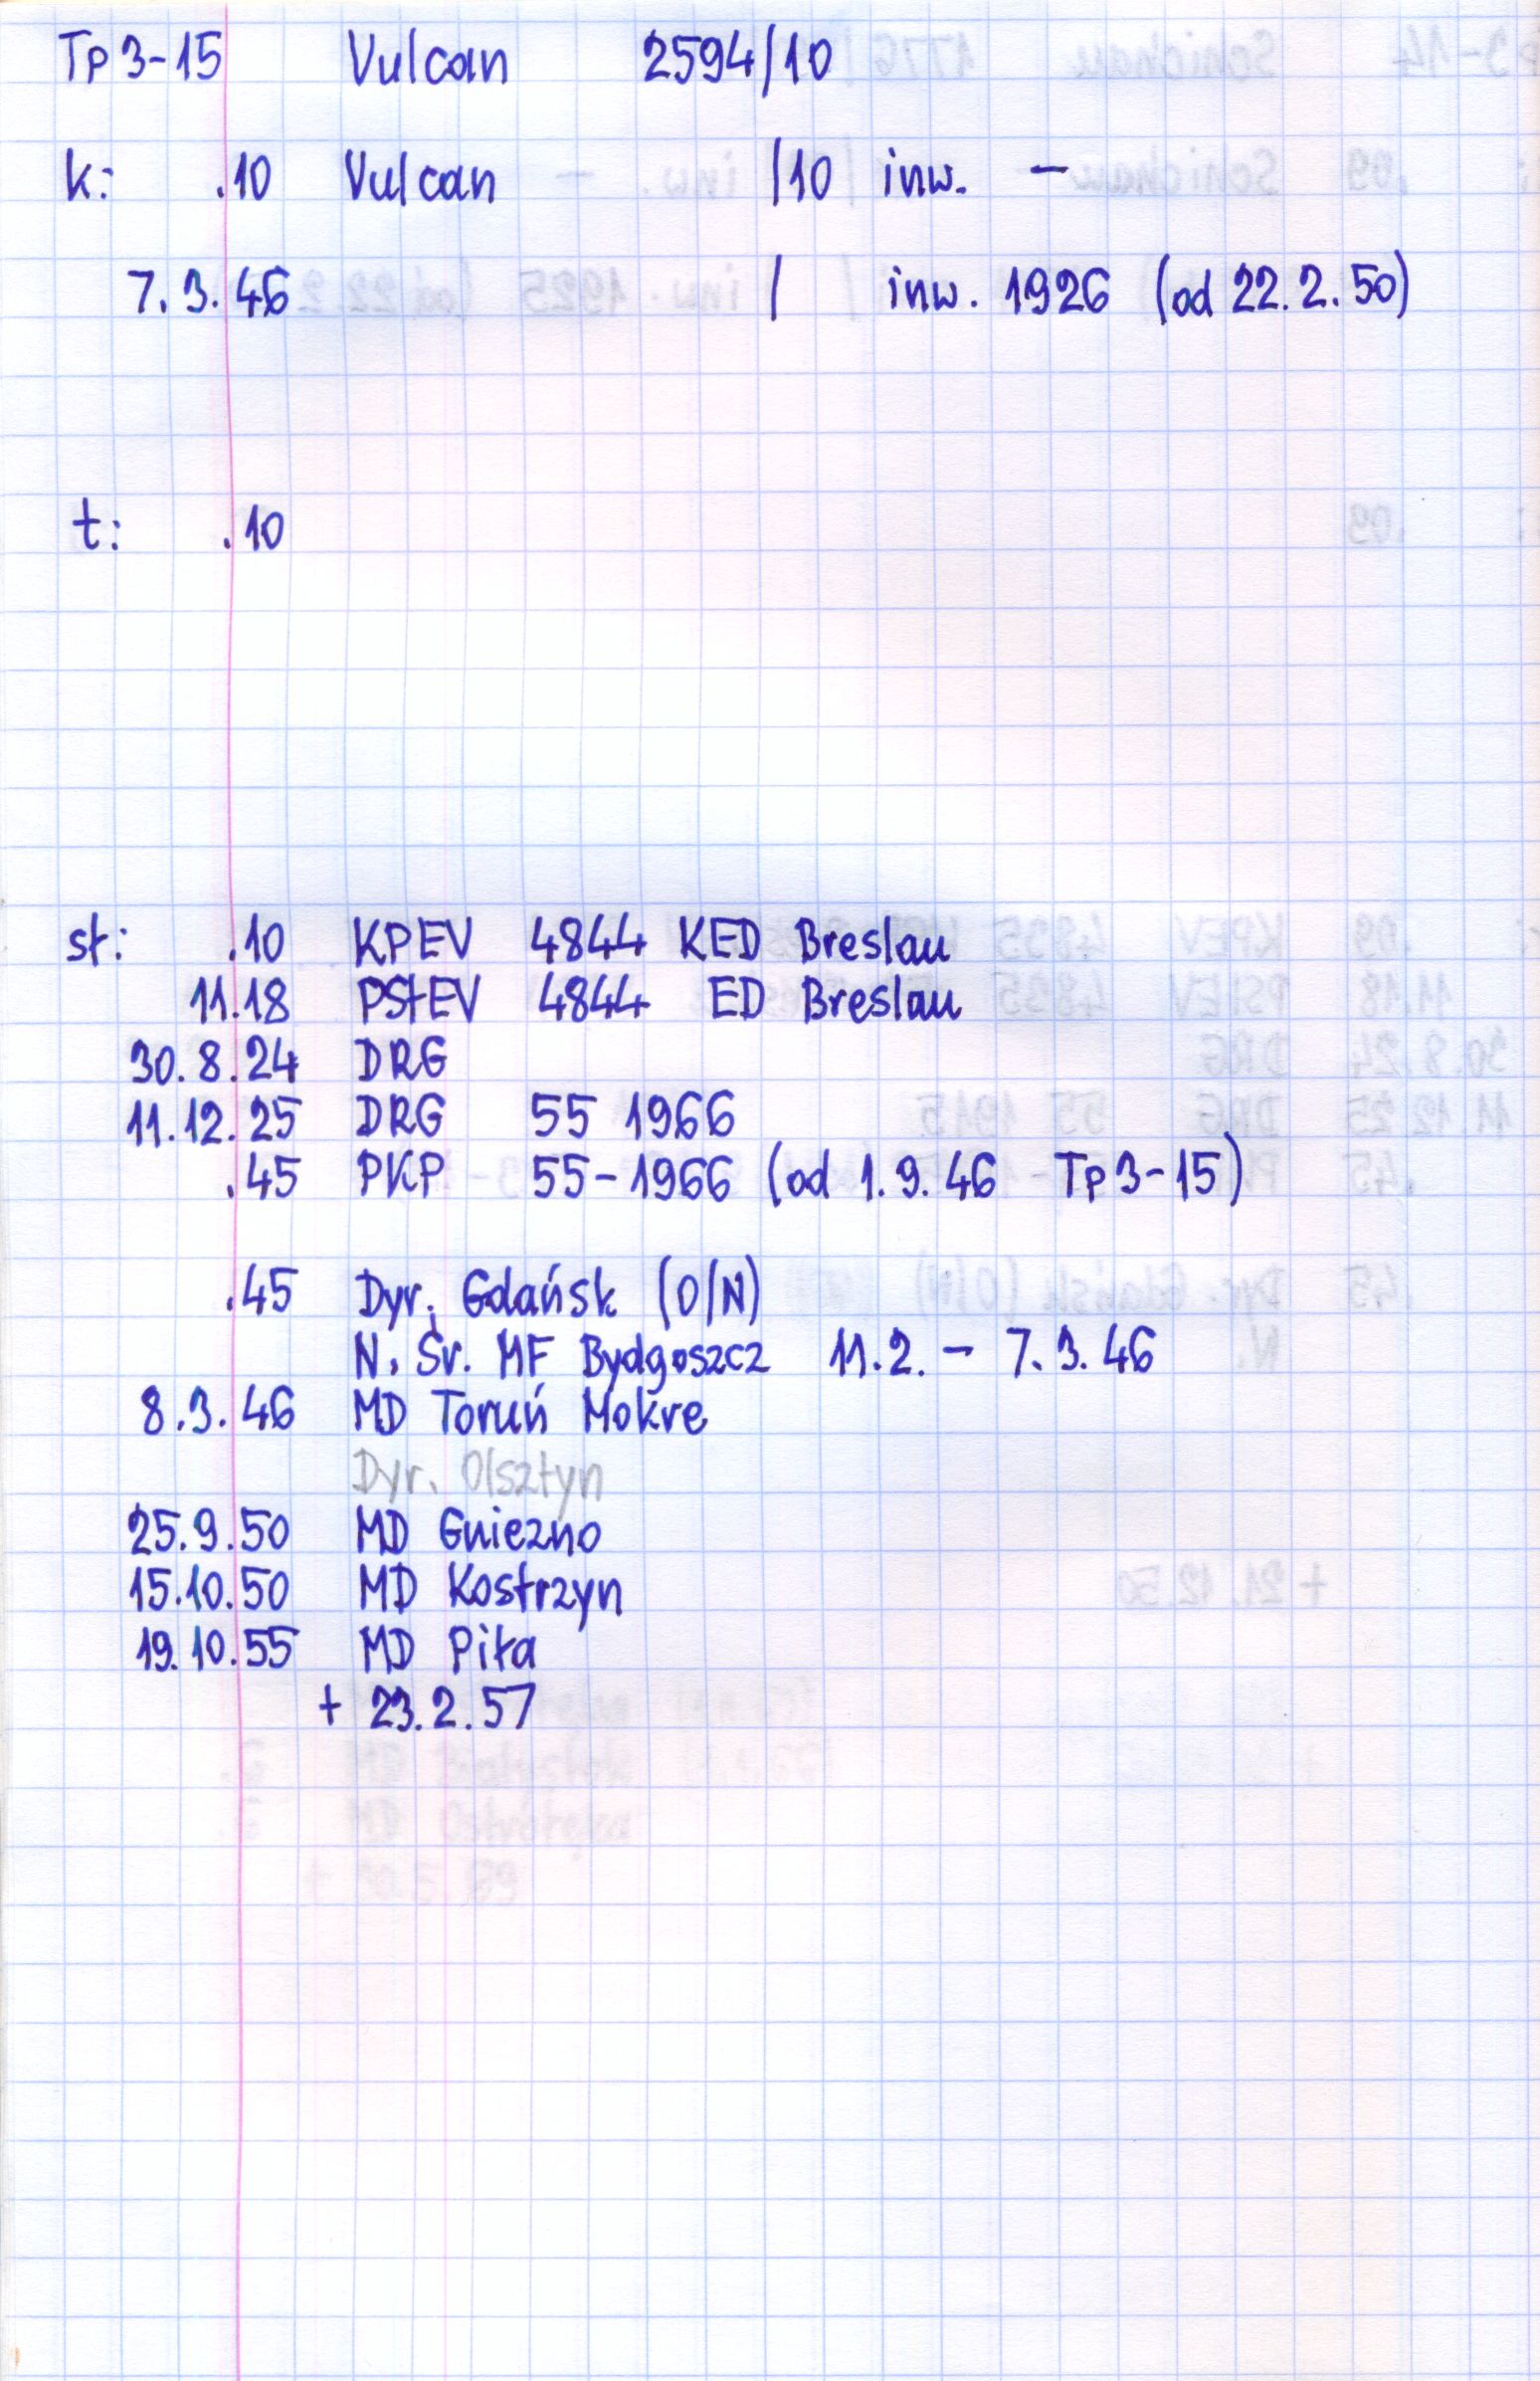 Tp3-15 Vulcan 2594/10
k: .10 Vulcan /10 inw. -
7.3.46 / inw. 1926 (od 22.2.50)
t: .10
st: .10 KPEV 4844 KED Breslau
11.18 PStEV 4844 ED Breslau
30.8.24 DRG
11.12.25 DRG 55 1966
.45 PKP 55-1966 (od 1.9.46 Tp3-15)
.45 Dyr. Gdańsk (O/N)
N. Śr. MF Bydgoszcz 11.2. - 7.3.46
8.3.46 MD Toruń Mokre
Dyr. Olsztyn
25.9.50 MD Gniezno
15.10.50 MD Kostrzyn
19.10.55 MD Piła
+ 23.2.57